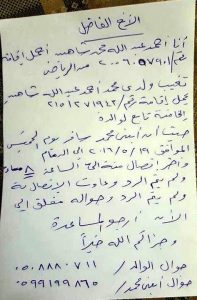 الأخ الفاضل
أنا أحمد عبد الله محمد شاهين أحمل إقامة
رقم / ٢٠٠٦٠٥٧٩٠١ من الرياض
تغيب ولدي محمد أحمد عبد الله شاهين
يحمل إقامة رقم / ٢١٥١٢٧١٩٤٢
الخاصة تابع لوالده
حيث أن ابني محمد سافر يوم الخميس
الموافق ٢٠١٦/٥/١٩ إلى الدمام
وآخر إتصال منه الساعة ٨ مساء
ولم يتم الرد وعاودت الإتصال به
ولم يتم الرد وجواله مغلق إلى
الآن أرجو المساعدة
وجزاكم الله خيراً
جوال الوالد / ٠٥٠٨٨٨٠٧١١
جوال ابني محمد / ٠٥٩٩١٩٩٨٦٥